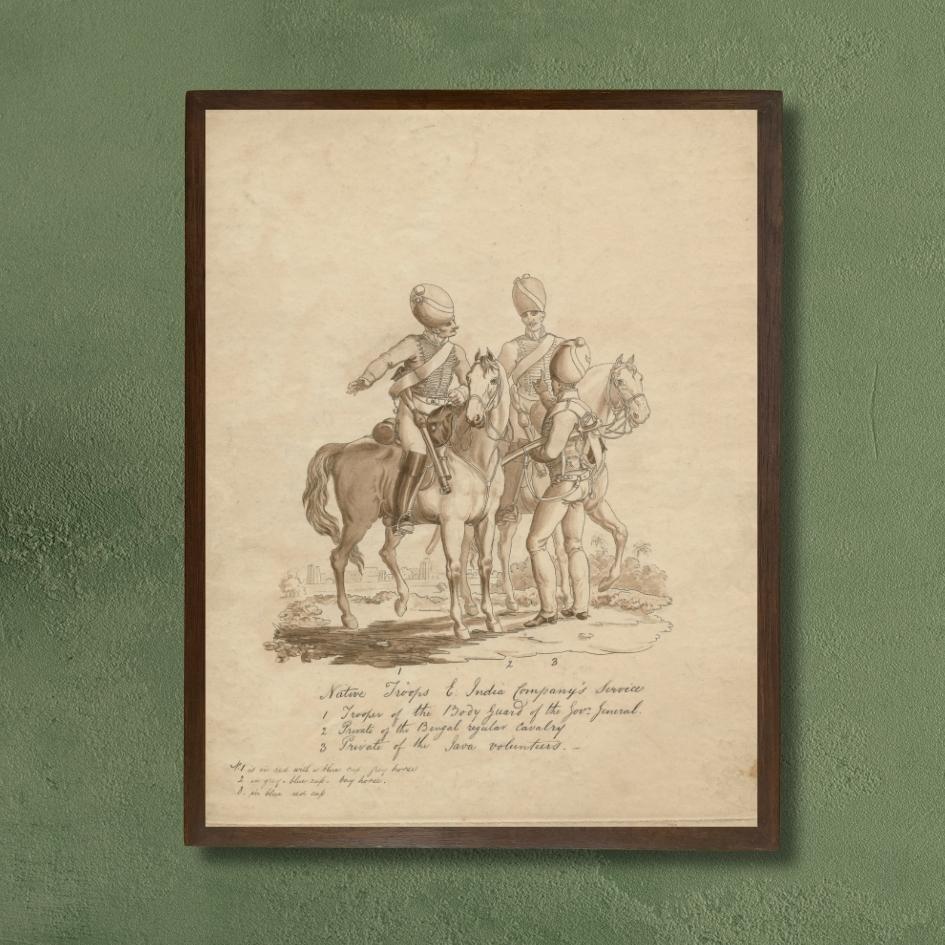 1
2 3
Native Troops E. India Company's Service
1 Trooper of the Body Guard of the Govr. General.
2 Private of the Bengal regular Cavalry
3 Private of the Java volunteers. —
No. 1 is in red with a blue cap grey horse
2 in grey - blue cap - bay horse.
3. in blue red cap